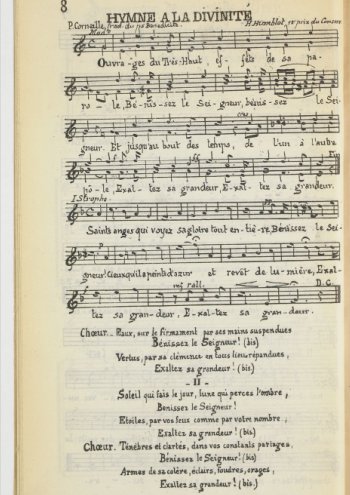 8
HYMNE A LA DIVINITÉ
P. Corneille, trad. du ps Benedicite
H. Hamblot, 1er prix du Concours
Modto
Ouvra-ges du Très-Haut, ef-fets de sa pa-
ro-le, Bé-nis-sez le Sei-gneur, bénis-sez le Sei-
gneur. Et jusqu'au bout des temps, de l'un à l'autre
ff Fin
pô-le, Exal-tez sa grandeur, E-xal-tez sa grandeur.
I Strophe
Saints anges qui voyez sa gloire tout en-tiè-re, Bénissez le Sei-
gneur! Cieux qu'il a peints d'azur et revêt de lu-mière, E-xal-
mf rall. D.C.
tez sa gran-deur, E-xal-tez sa gran-deur.
Chœur._ Eaux, sur le firmament par ses mains suspendues
Bénissez le Seigneur! (bis)
Vertus, par sa clémence en tous lieux répandues,
Exaltez sa grandeur! (bis)
- II -
Soleil qui fais le jour, lune qui perces l'ombre,
Benissez le Seigneur!
Etoiles, par vos feux comme par votre nombre,
Exaltez sa grandeur! (bis)
Chœur. Ténèbres et clartés, dans vos constants partages,
Bénissez le Seigneur! (bis)
Armes de sa colère, éclairs, foudres, orages,
Exaltez sa grandeur! (bis.)